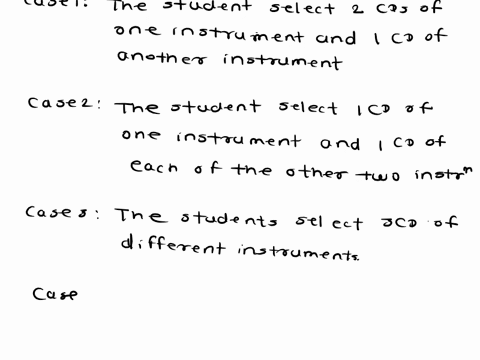 Case1: The student select 2 CDs of
one instrument and 1 CD of
another instrument
Case2: The student select 1CD of
one instrument and 1 CD of
each of the other two instrn
Case3: The students select 3CD of
different instruments.
Case